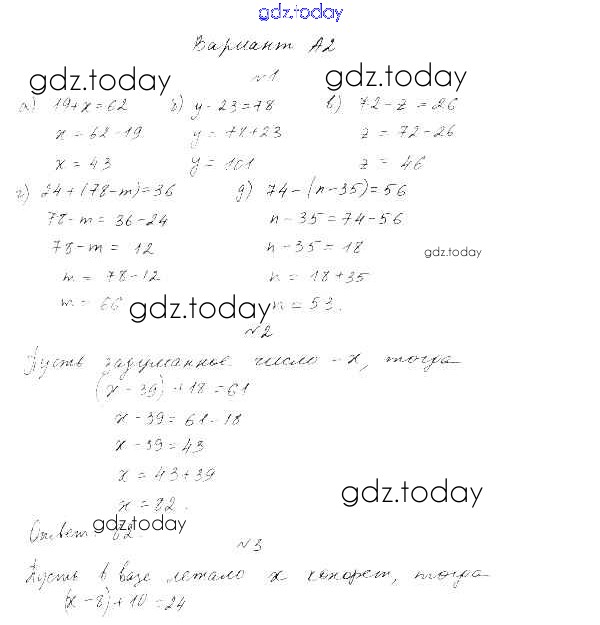 gdz.today
Вариант А2
№1
gdz.today gdz.today
а) 19+x=62 б) y-23=78 в) 72-z=26
x=62-19 y=78+23 z=72-26
x=43 y=101 z=46
г) 24+(78-m)=36 д) 74-(n-35)=56
78-m=36-24 n-35=74-56
78-m=12 n-35=18
gdz.today
m=78-12 n=18+35
m=66 gdz.today n=53.
№2
Пусть задуманное число - x, тогда
(x-39)+18=61
x-39=61-18
x-39=43
x=43+39
gdz.today
x=82.
Ответ: 82.
gdz.today
№3
Пусть в вазе летало x конфет, тогда
(x-8)+10=24